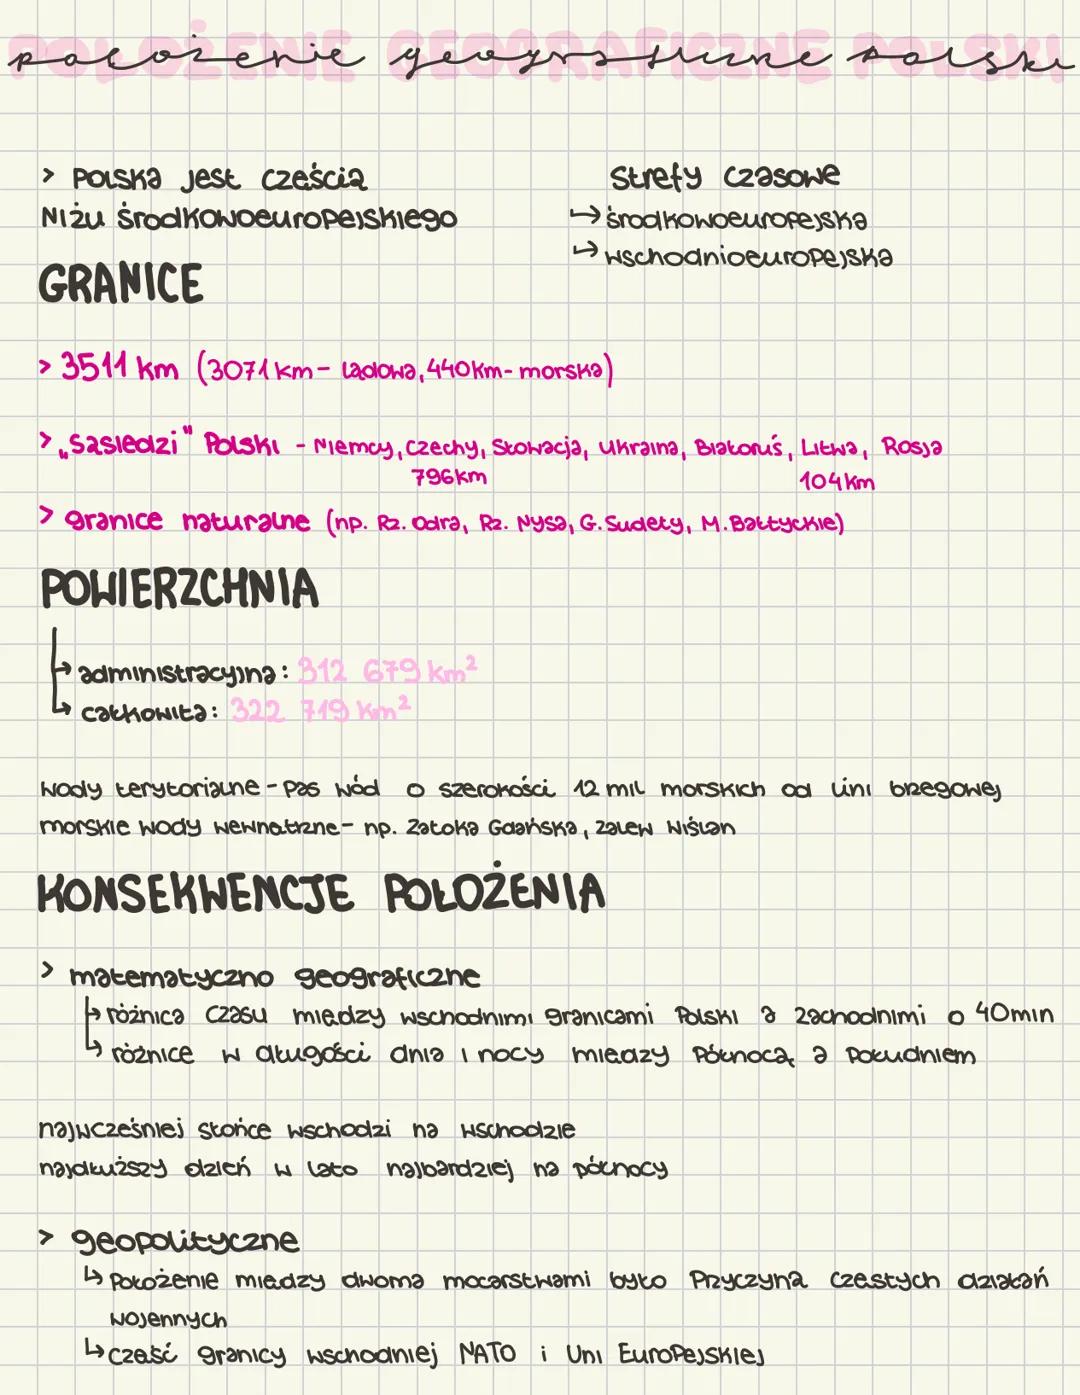 położenie geograficzne Polski
POŁOŻENIE GEOGRAFICZNE POLSKI
> Polska jest częścią
Niżu środkowoeuropejskiego
Strefy czasowe
↳ środkowoeuropejska
↳ wschodnioeuropejska
GRANICE
> 3511 km (3071 km - lądowa, 440km - morska)
> „Sąsiedzi" Polski - Niemcy, Czechy, Słowacja, Ukraina, Białoruś, Litwa, Rosja
796km 104km
> granice naturalne (np. Rz. Odra, Rz. Nysa, G. Sudety, M. Bałtyckie)
POWIERZCHNIA
↳ administracyjna: 312 679 km²
↳ całkowita: 322 719 km²
wody terytorialne - pas wód o szerokości 12 mil morskich od lini brzegowej
morskie wody wewnętrzne - np. Zatoka Gdańska, zalew Wiślan
KONSEKWENCJE POŁOŻENIA
> matematyczno geograficzne
↳ różnica czasu między wschodnimi granicami Polski a zachodnimi o 40min
↳ różnice w długości dnia i nocy miedzy Północą a Południem
najwcześniej słońce wschodzi na wschodzie
najdłuższy dzień w lato najbardziej na północy
> geopolityczne
↳ Położenie miedzy dwoma mocarstwami było Przyczyną częstych działań
wojennych
↳ cześć granicy wschodniej NATO i Uni Europejskiej